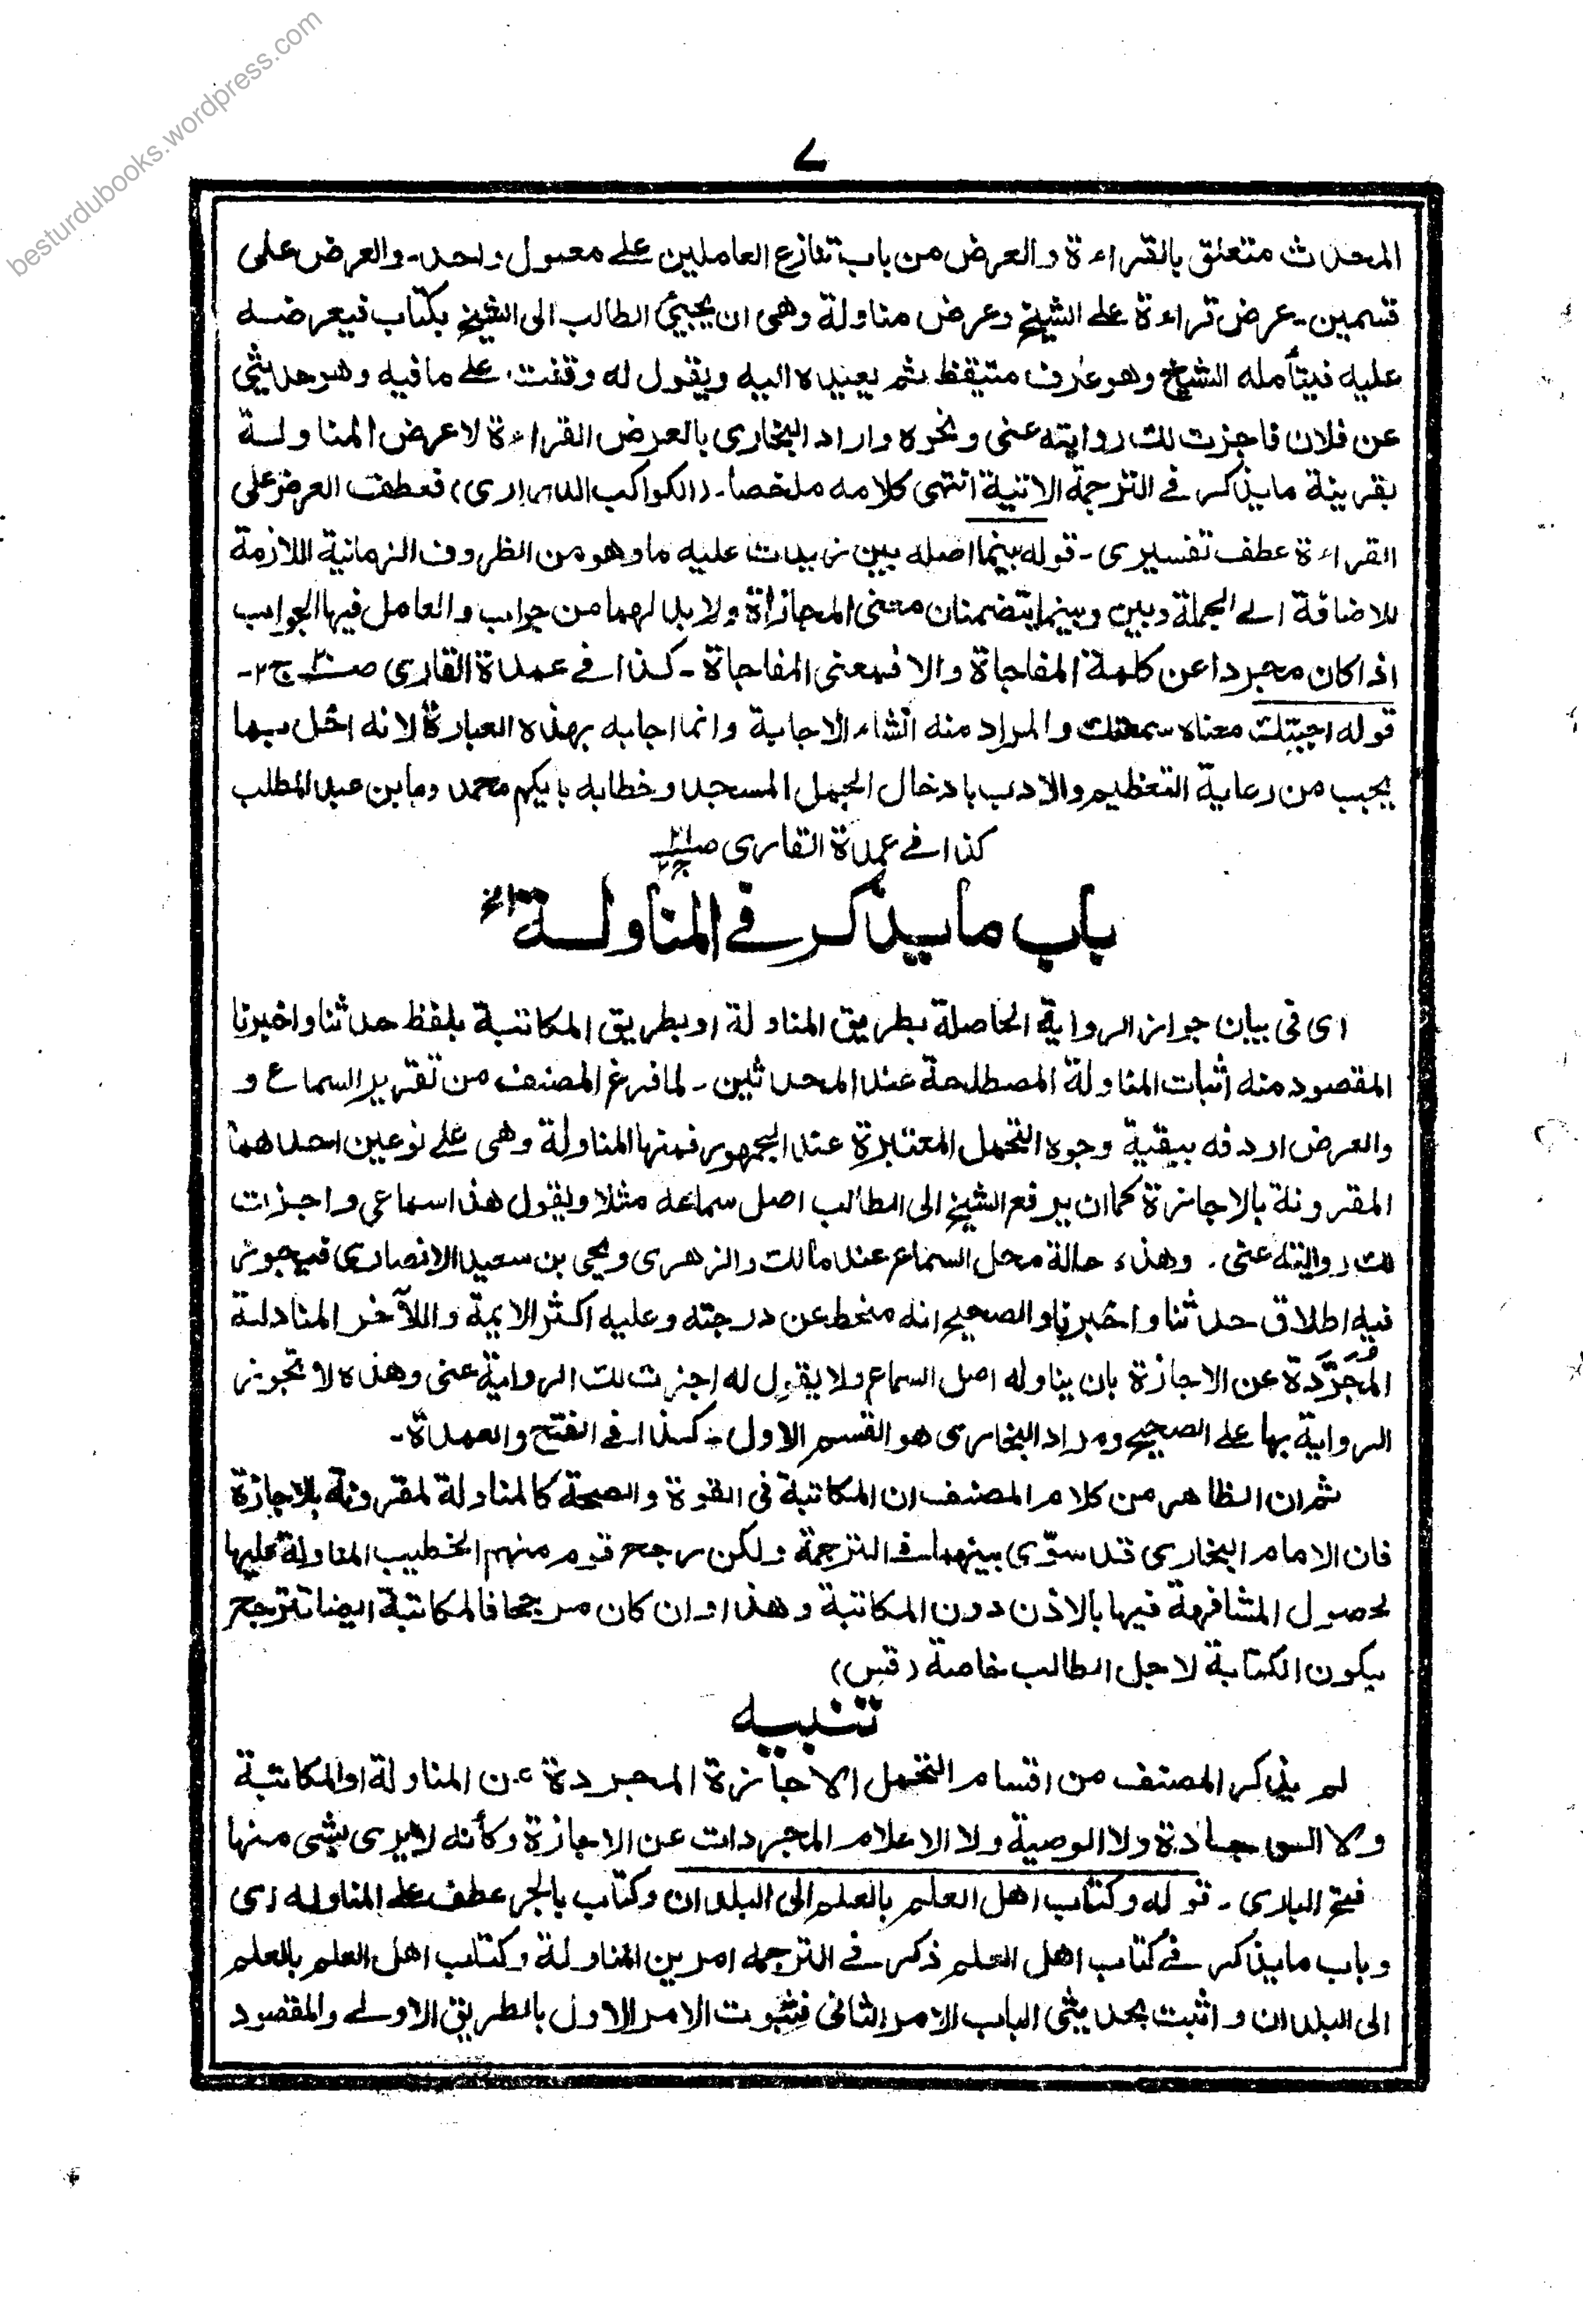 besturdubooks.wordpress.com
٧
المحدث متعلق بالقراءة والعرض من باب تنازع العاملين علے معمول واحد۔ والعرض على
قسمين۔ عرض قراءة علے الشيخ وعرض مناولة وهى ان يجيئ الطالب الى الشيخ بكتاب فيعرضه
عليه فيتأمله الشيخ وهو عارف متيقظ ثم يعيده اليه ويقول له وقفت علے ما فيه وهو حديثى
عن فلان فاجزت لك روايته عنى ونحوه واراد البخارى بالعرض القراءة لا عرض المناولة
بقرينة ما يذكر فے الترجمة الاتية انتهى كلامه ملخصا۔ (الكواكب الدرارى) فعطف العرض على
القراءة عطف تفسيرى۔ قوله بينما اصله بين زيدت عليه ما وهو من الظروف الزمانية اللازمة
للاضافة الے الجملة وبين وبينما يتضمنان معنى المجازاة ولا بد لهما من جواب والعامل فيها الجواب
اذا كان مجردا عن كلمة المفاجاة والا فمعنى المفاجاة۔ كذا فے عمدة القارى صـ٢٠ ج٢۔
قوله اجبتك معناه سمعتك والمراد منه انشاء الاجابة وانما اجابه بهذه العبارة لانه اخل بما
يجب من رعاية التعظيم والادب بادخال الجمل المسجد وخطابه بايكم محمد وبابن عبد المطلب
كذا فے عمدة القارى صـ٢١ ج٢
باب ما يذكر فے المناولة الخ
اى فى بيان جواز الرواية الحاصلة بطريق المناولة او بطريق المكاتبة بلفظ حدثنا واخبرنا
المقصود منه اثبات المناولة المصطلحة عند المحدثين۔ لما فرغ المصنف من تقرير السماع و
والعرض اردفه ببقية وجوه التحمل المعتبرة عند الجمهور فمنها المناولة وهى علے نوعين احدهما
المقرونة بالاجازة كما ان يرفع الشيخ الى الطالب اصل سماعه مثلا ويقول هذا سماعى واجزت
لك روايته عنى. وهذه حالة محل السماع عند مالك والزهرى ويحى بن سعيد الانصارى فيجوز
فيه اطلاق حدثنا واخبرنا والصحيح انه منحط عن درجته وعليه اكثر الايمة واللآخر المناولة
المجرّدة عن الاجازة بان يناوله اصل السماع ولا يقول له اجزت لك الرواية عنى وهذه لا تجوز
الرواية بها علے الصحيح ومراد البخارى هو القسم الاول۔ كذا فے الفتح والعمدة۔
ثم ان الظاهر من كلام المصنف ان المكاتبة فى القوة والصحة كالمناولة لمقرونة بالاجازة
فان الامام البخارى قد سوّى بينهما فے الترجمة ولكن رجح قوم منهم الخطيب المناولة عليها
لحصول المشافهة فيها بالاذن دون المكاتبة وهذا وان كان مرجحا فالمكاتبة ايضا تترجح
بكون الكتابة لاجل الطالب خاصة (قس)
تنبيه
لم يذكر المصنف من اقسام التحمل الاجازة المجردة عن المناولة او المكاتبة
ولا الوجادة ولا الوصية ولا الاعلام المجردات عن الاجازة وكأنه لا يرى بشى منها
فتح البارى۔ قوله وكتاب اهل العلم بالعلم الى البلدان وكتاب بالجر عطف علے المناوله اى
وباب ما يذكر فے كتاب اهل العلم ذكر فے الترجمه امرين المناولة وكتاب اهل العلم بالعلم
الى البلدان واثبت بحديثى الباب الامر الثانى فثبوت الامر الاول بالطريق الاولے والمقصود